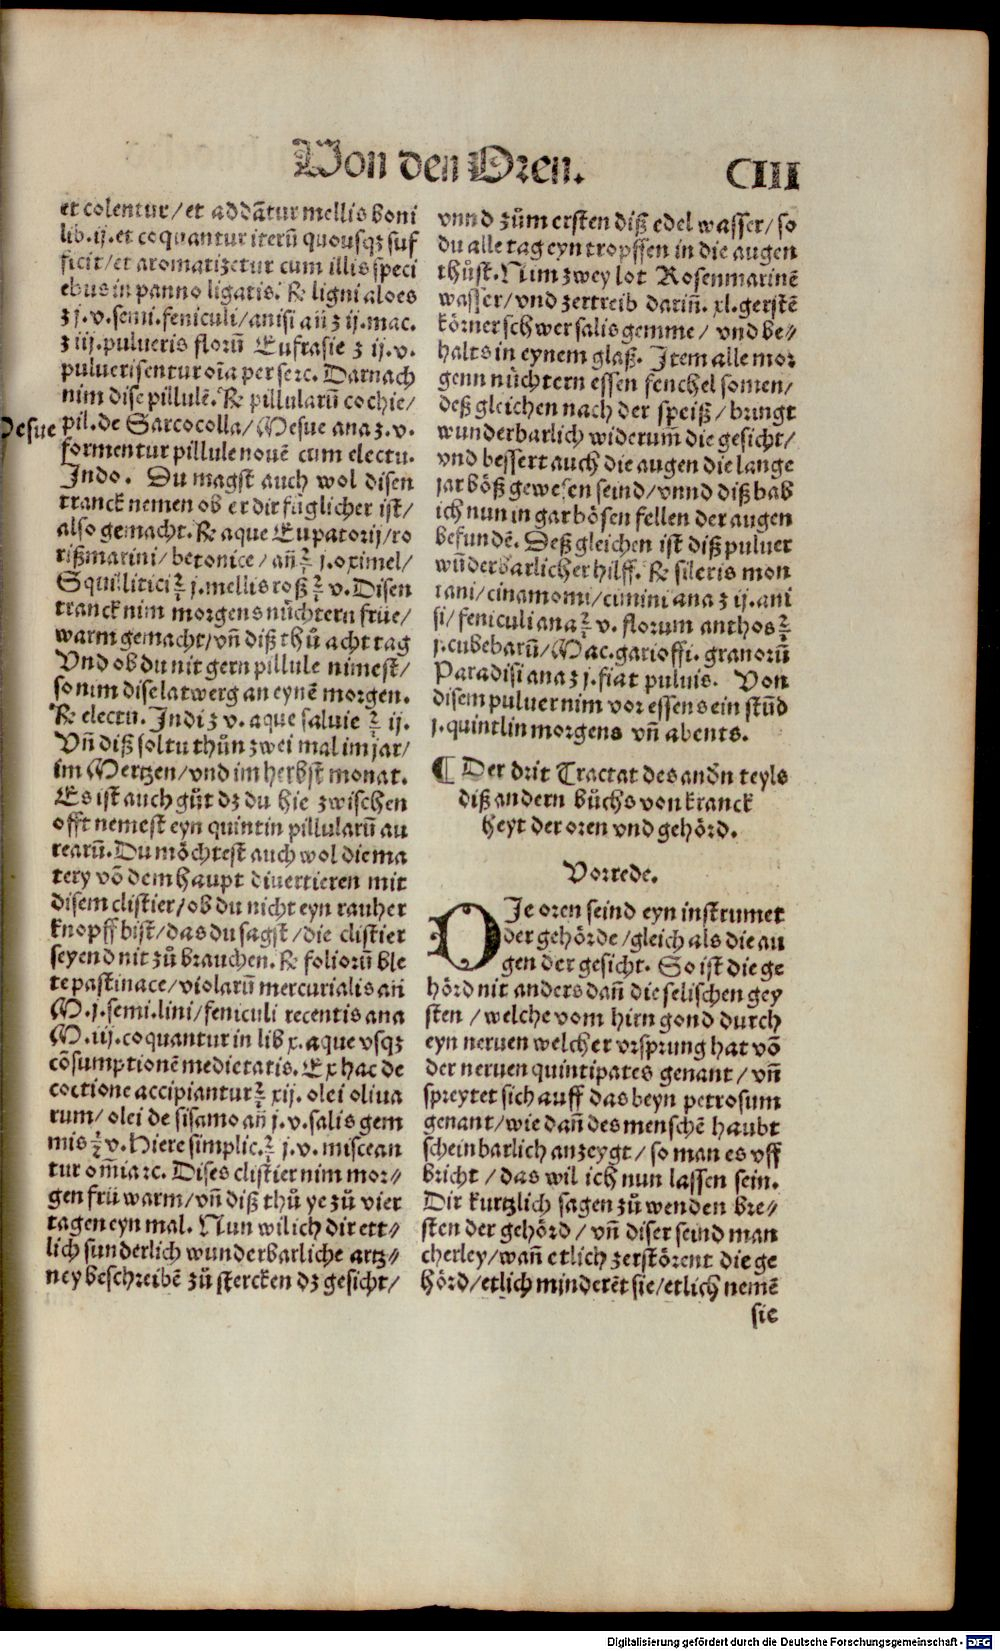 Von den Oren.
CIII
et colentur/et addãtur mellis boni
lib.ij.et coquantur iterũ quousqꝫ suf
ficit/et aromatizetur cum illis speci
ebus in panno ligatis. ℞ ligni aloes
ʒ j.v.semi.feniculi/anisi añ ʒ ij.mac.
ʒ iij.pulueris florũ Eufrasie ʒ ij.v.
puluerisentur oĩa per serc. Darnach
nim dise pillulẽ. ℞ pillularũ cochie/
pil.de Sarcocolla/Mesue ana ʒ.v.
Mesue
formentur pillule nouẽ cum electu.
Indo. Du magst auch wol disen
tranck nemen ob er dir füglicher ist/
also gemacht. ℞ aque Eupatorij/ro
rißmarini/betonice/añ ℥ j.oximel/
Squillitici ℥ j.mellis roß ℥ v. Disen
tranck nim morgens nüchtern früe/
warm gemacht/vñ diß thů acht tag
Vnd ob du nit gern pillule nimest/
so nim dise latwerg an eynẽ morgen.
℞ electu. Indi ʒ v. aque saluie ℥ ij.
Vñ diß soltu thůn zwei mal im jar/
im Mertzen/vnd im herbst monat.
Es ist auch gůt dz du hie zwischen
offt nemest eyn quintin pillularũ au
rearũ. Du möchtest auch wol die ma
tery võ dem haupt divertieren mit
disem clistier/ob du nicht eyn rauher
knopff bist/das du sagst/die clistier
seyend nit zů brauchen. ℞ foliorũ ble
te pastinace/violarũ mercurialis añ
M.j.semi.lini/feniculi recentis ana
M.iij.coquantur in lib x.aque vsqꝫ
cõsumptionẽ medietatis. Ex hac de
coctione accipiantur ℥ xij. olei oliua
rum/olei de sisamo añ j.v.salis gem
mis ℥ v. Hiere simplic. ℥ j.v.miscean
tur om̃ia rc. Dises clistier nim mor⸗
gen frü warm/vñ diß thů ye zů vier
tagen eyn mal. Nun wil ich dir ett⸗
lich sunderlich wunderbarliche artz⸗
ney beschreibẽ zů stercken dz gesicht/
vnnd zům ersten diß edel wasser/so
du alle tag eyn tropffen in die augen
thůst. Nim zwey lot Rosenmarinẽ
wasser/vnd zertreib dariñ. xl.gerstẽ
körner schwer salis gemme/vnd be⸗
halts in eynem glaß. Item alle mor
genn nüchtern essen fenchel somen/
deßgleichen nach der speiß/bringt
wunderbarlich widerum̃ die gesicht/
vnd bessert auch die augen die lange
jar böß gewesen seind/vnnd diß hab
ich nun in gar bösen fellen der augen
befundẽ. Deßgleichen ist diß puluer
wũderbarlicher hilff. ℞ sileris mon
tani/cinamomi/cimini ana ʒ ij.ani
si/feniculi ana ℥ v. florum anthos ℥
j.cubebarũ/Mac.garioffi.granorũ
Paradisi ana ʒ j.fiat puluis. Von
disem puluer nim vor essens ein stũd
j.quintlin morgens vñ abents.
¶ Der drit Tractat des andn̄ teyls
diß andern bůchs von kranck
heyt der oren vnd gehörd.
Vorrede.
DIe oren seind eyn instrumet
der gehörde/gleich als die au
gen der gesicht. So ist die ge
hörd nit anders dañ die selischen gey
sten/welche vom hirn gond durch
eyn neruen welcher vrsprung hat võ
der neruen quintipates genant/vñ
spreytet sich auff das beyn petrosum
genant/wie dañ des menschẽ haubt
scheinbarlich anzeygt/so man es vff
bricht/das wil ich nun lassen sein.
Dir kurtzlich sagen zů wenden bre⸗
sten der gehörd/vñ diser seind man
cherley/wañ etlich zerstörent die ge
hörd/etlich minderẽt sie/etlich nemẽ
sie
Digitalisierung gefördert durch die Deutsche Forschungsgemeinschaft - DFG